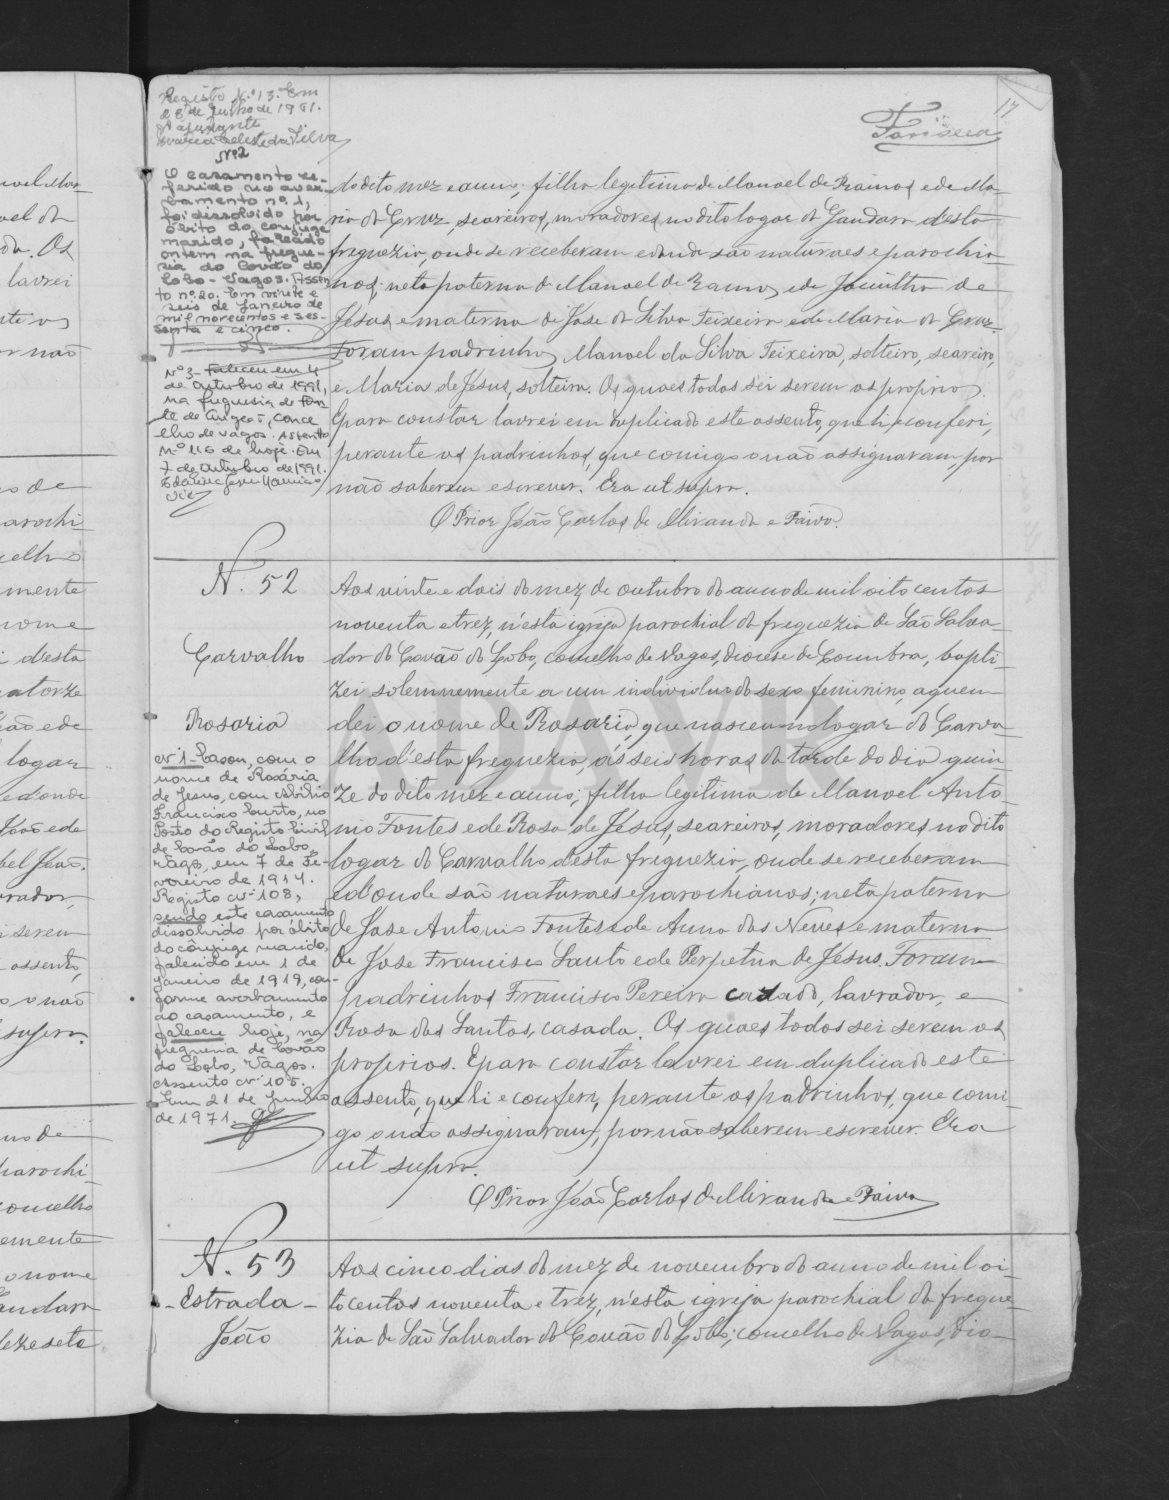 17
Fonseca
Registo N.º 13. Em
28 de Junho de 1961.
A ajudante
Maria Celeste da Silva
Nº 2
O casamento re-
ferido no aver-
bamento nº 1,
foi dissolvido por
óbito do conjuge
marido, falecido
ontem na fregue-
sia do Covão do
Lobo - Vagos. Assen
to nº 20. Em vinte e
seis de Janeiro de
mil novecentos e ses-
senta e cinco.
Nº 3 - Faleceu em 4
de Outubro de 1991,
na freguesia de Fon-
te de Angeão, conce
lho de Vagos. Assento
Nº 116 de hoje. Em
7 de Outubro de 1991.
do dito mez e anno; filha legitima de Manoel de Ramos e de Ma-
ria da Cruz seareiros, moradores no dito logar da Gandara d'esta
freguezia, onde se receberam e donde são naturaes e parochia-
nos; neta paterna de Manoel de Ramos e de Jacintha de
Jesus, e materna de José da Silva Teixeira e de Maria da Cruz.
Foram padrinhos, Manoel da Silva Teixeira, solteiro, seareiro,
e Maria de Jesus, solteira. Os quaes todos sei serem os proprios.
E para constar lavrei em duplicado este assento, que li e conferi,
perante os padrinhos, que comigo o não assignaram, por
não saberem escrever. Era ut supra.
O Prior João Carlos de Miranda e Paiva.
N. 52
Carvalho
Rosaria
Nº 1 - Casou, com o
nome de Rosária
de Jesus, com Abilio
Francisco Curto, no
Posto do Registo Civil
de Covão do Lobo,
Vagos, em 7 de Fe-
vereiro de 1914.
Registo nº 108,
sendo este casamento
dissolvido por óbito
do cônjuge marido,
falecido em 1 de
Janeiro de 1919, con-
forme averbamento
ao casamento, e
faleceu hoje, na
freguesia de Covão
do Lobo, Vagos.
Assento nº 105.
Em 21 de Junho
de 1971.
Aos vinte e dois do mez de outubro do anno de mil oito centos
noventa e trez, n'esta igreja parochial da freguezia de São Salva-
dor do Covão do Lobo, concelho de Vagos, diocese de Coimbra, bapti-
zei solemnemente a um individuo do sexo feminino, a quem
dei o nome de Rosaria, que nasceu no logar do Carva
lho d'esta freguezia, ás seis horas da tarde do dia quin-
ze do dito mez e anno; filha legitima de Manoel Anto-
nio Fontes e de Rosa de Jesus, seareiros, moradores no dito
logar do Carvalho d'esta freguezia, onde se receberam
e d'onde são naturaes e parochianos; neta paterna
de Jose Antonio Fontes e de Anna das Neves e materna
de Jose Francisco Santo e de Perpetua de Jesus. Foram
padrinhos Francisco Pereira casado, lavrador, e
Rosa dos Santos, casada. Os quaes todos sei serem os
proprios. E para constar lavrei em duplicado este
assento, que li e conferi, perante os padrinhos, que comi-
go o não assignaram, por não saberem escrever. Era
ut supra.
O Prior João Carlos de Miranda e Paiva
N. 53
- Estrada -
João
Aos cinco dias do mez de novembro do anno de mil oi-
to centos noventa e trez, n'esta igreja parochial da fregue-
zia de São Salvador do Covão do Lobo, concelho de Vagos, dio-
ADAVR